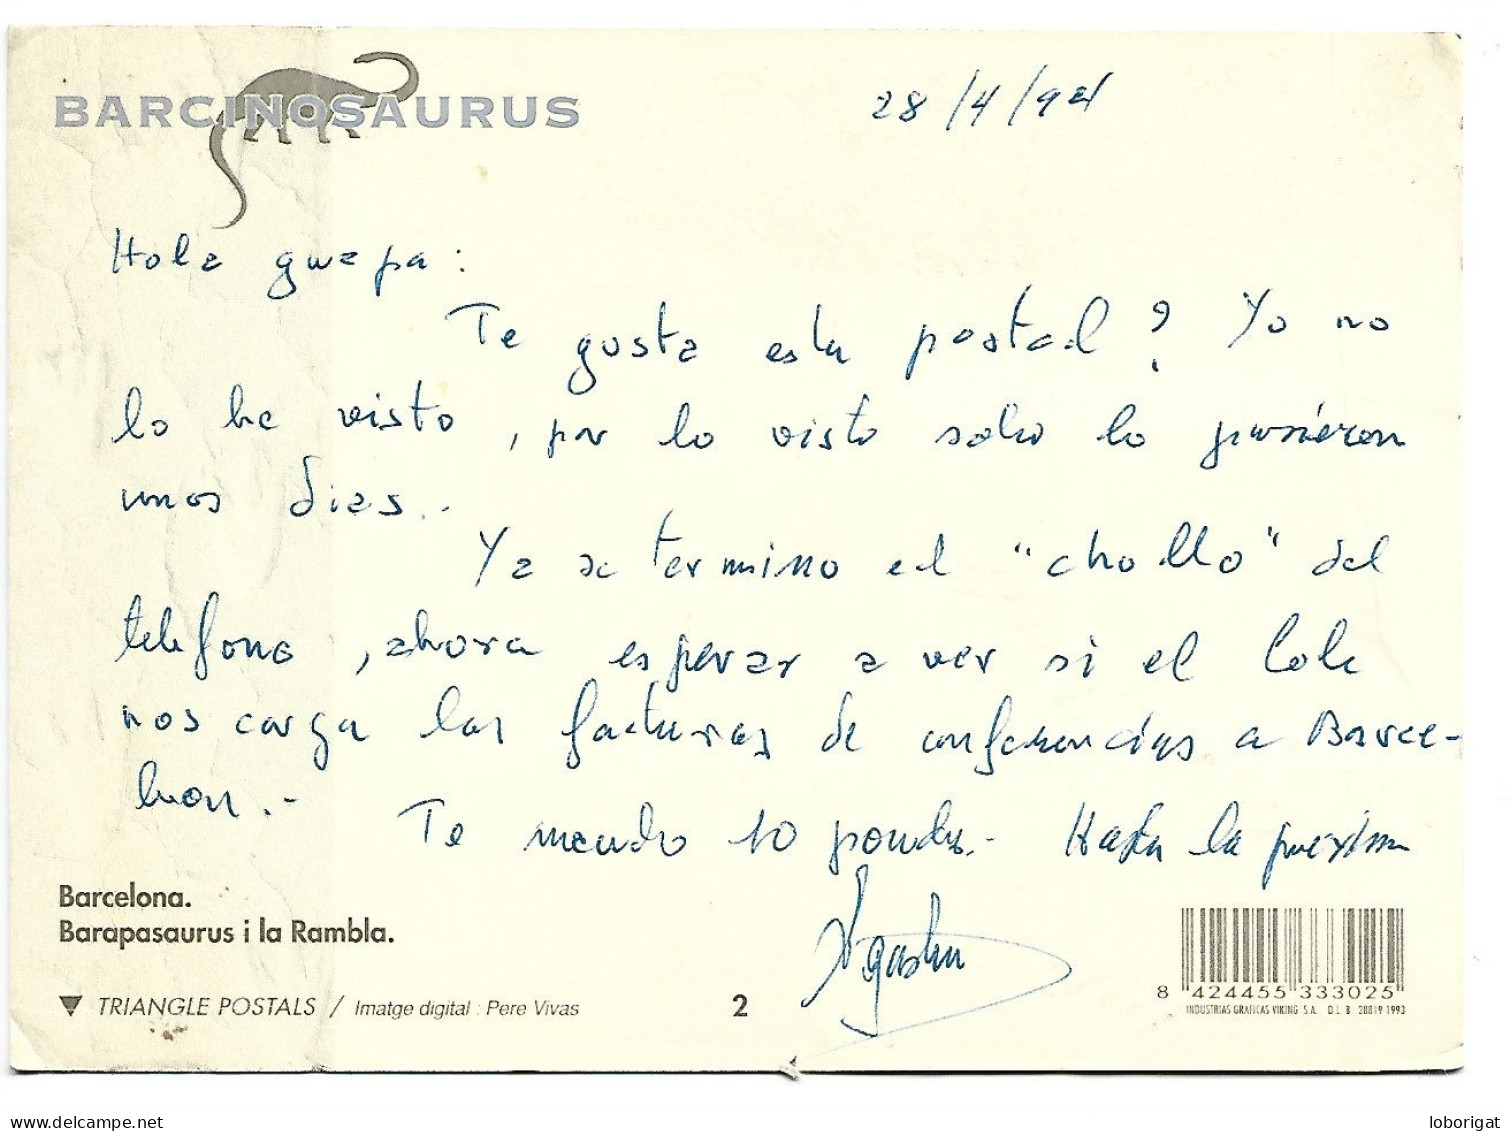 BARCINOSAURUS
28/4/94
Hola guapa:
Te gusta esta postal? Yo no
lo he visto, por lo visto solo lo pusieron
unos dias..
Ya se termino el "chollo" del
telefono, ahora esperar a ver si el Cole
nos carga las facturas de conferencias a Barce-
lona.-
Te mando 10 . - Hasta la proxima
Barcelona.
Barapasaurus i la Rambla.
TRIANGLE POSTALS / Imatge digital : Pere Vivas
2
8 424455 333025
INDUSTRIAS GRAFICAS VIKING S.A. D.L. B. 20819 1993
loborigat
delcampe.net